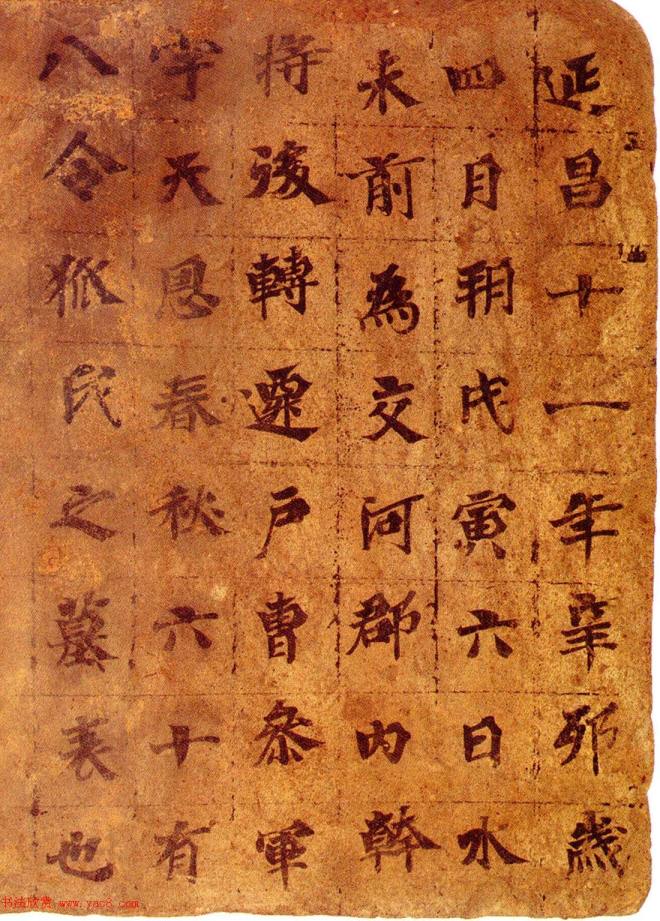 延昌十一年辛卯歲
四月朔戊寅六日水
未前為交河郡内幹
将後轉遷戶曹參軍
字天恩春秋六十有
八令狐氏之墓表也
书法欣赏 www.yac8.com